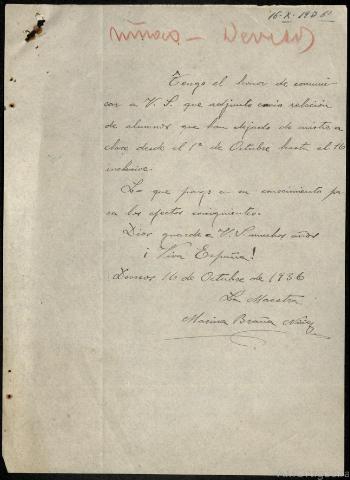 16-X-1936
Niñas - Devesos
Tengo el honor de comuni
car a V. S. que adjunto envio relación
de alumnos que han dejado de asistir a
clase desde el 1º de Octubre hasta el 16
inclusive.
Lo que pongo a su conocimiento pa
ra los efectos consiguientes.
Dios guarde a V. S muchos años
¡Viva España!
Devesos 16 de Octubre de 1936
La Maestra
Marina Braña